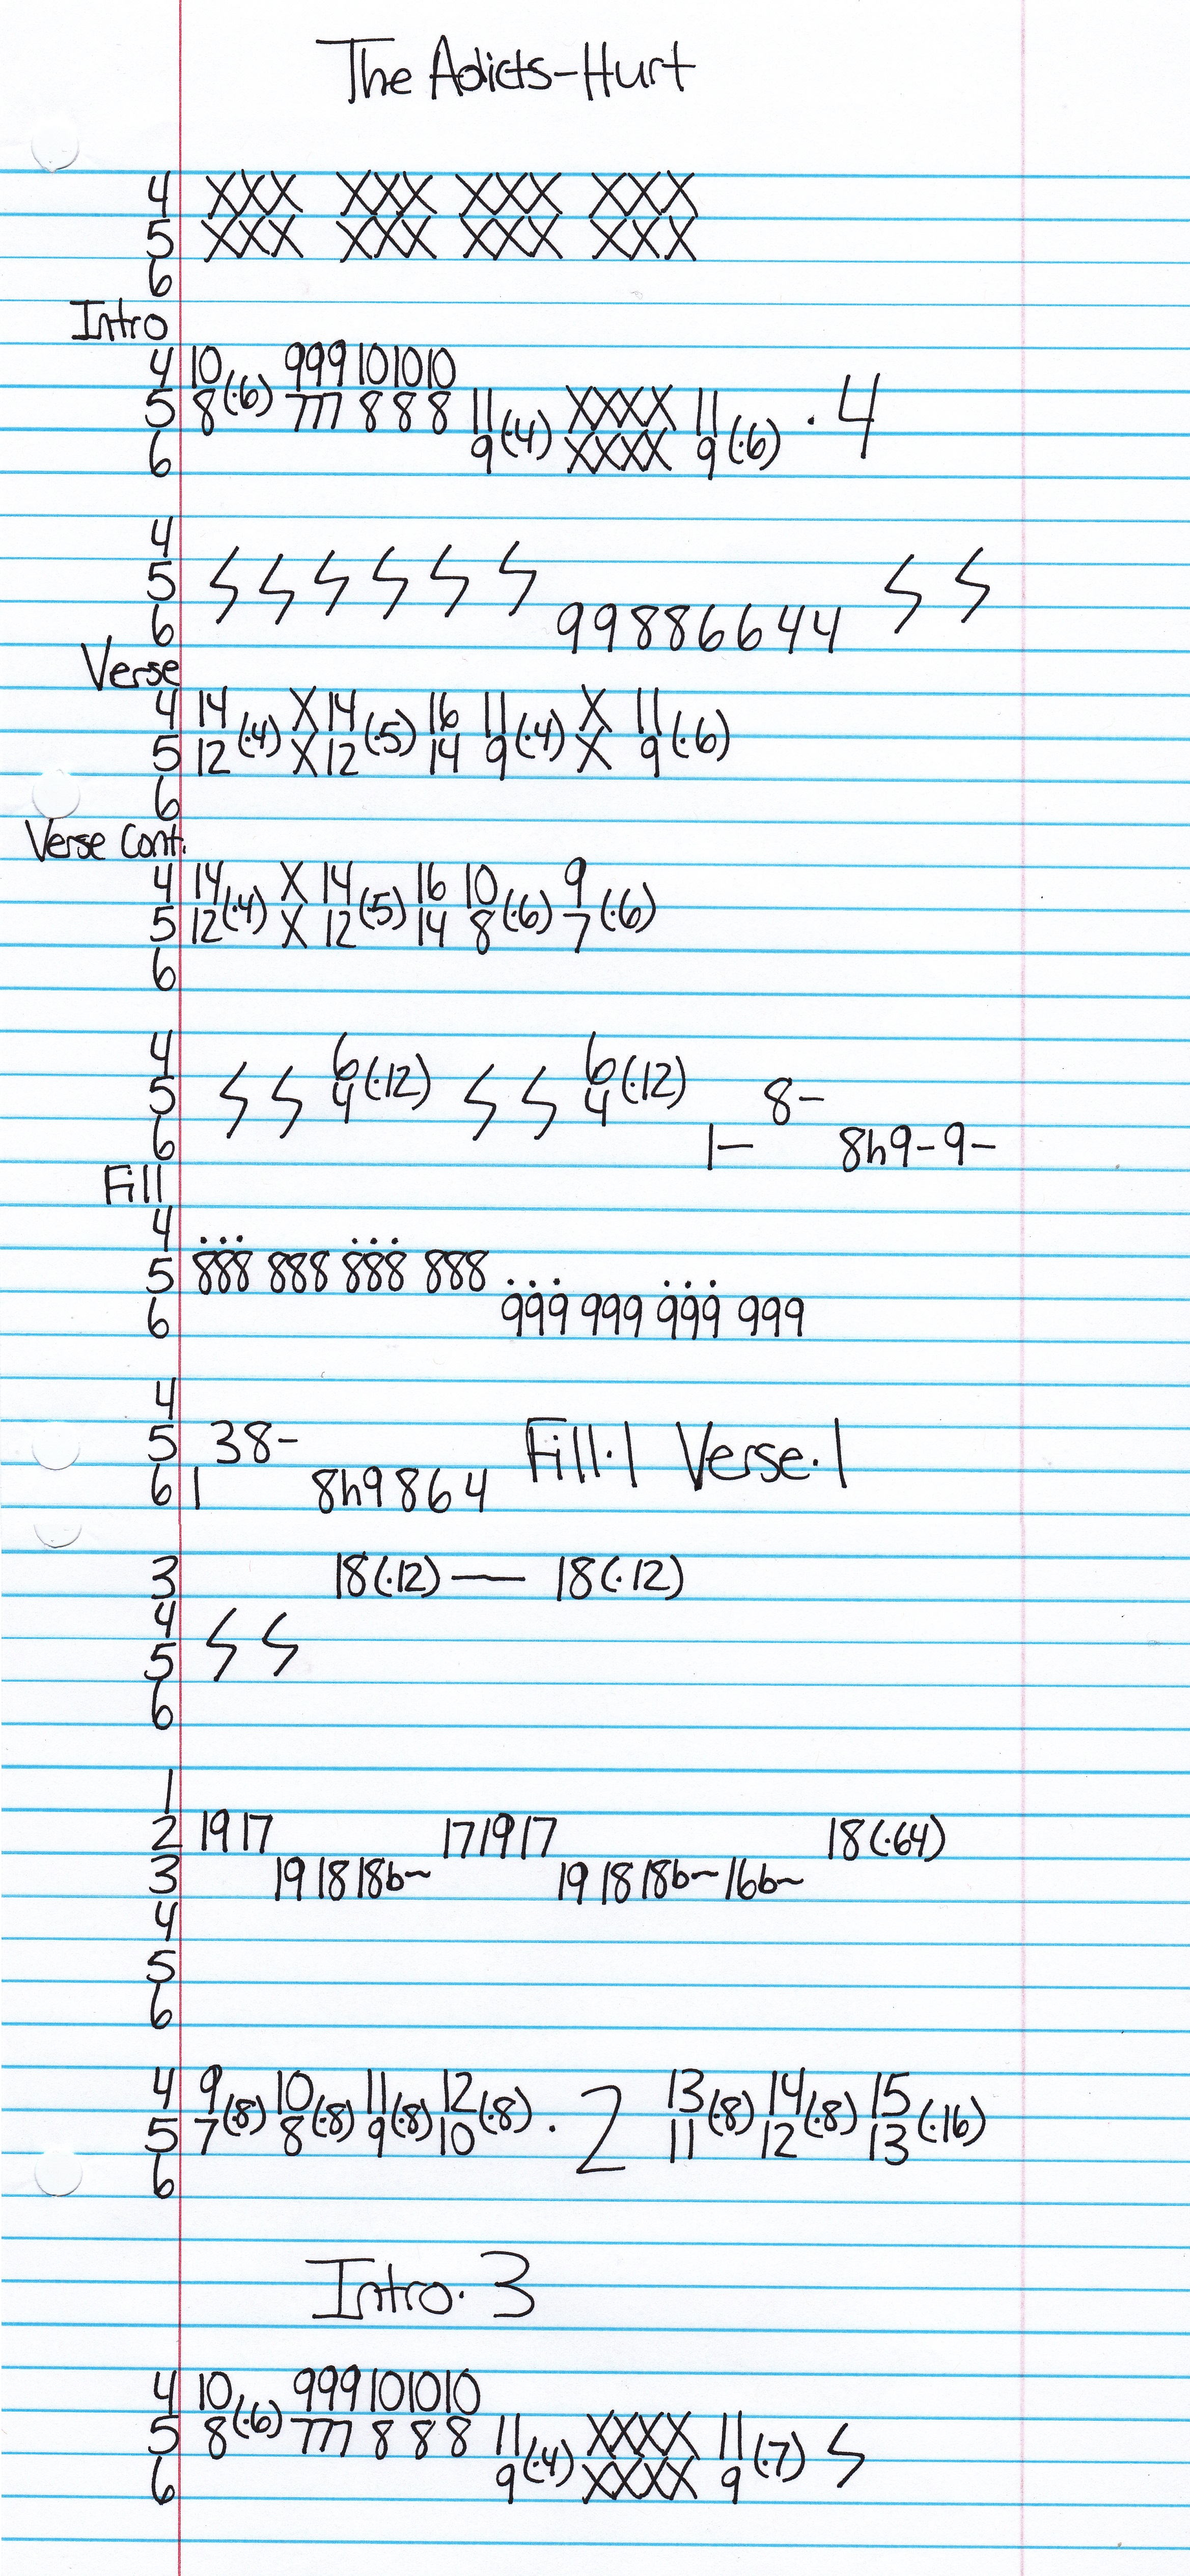 The Adicts-Hurt
4 XXX XXX XXX XXX
5 XXX XXX XXX XXX
6
Intro
4 10 999 10 10 10
5 8 (·6) 777 8 8 8 11 XXXX 11 · 4
6 9 (·4) XXXX 9 (·6)
4
5
6 9 9 8 8 6 6 4 4
Verse
4 14 X 14 16 11 X 11
5 12 (·4) X 12 (·5) 14 9 (·4) X 9 (·6)
6
Verse Cont.
4 14 X 14 16 10 9
5 12 (·4) X 12 (·5) 14 8 (·6) 7 (·6)
6
4 6 6
5 4 (·12) 4 (·12) 8-
6 1- 8h9-9-
Fill
4
5 888 888 888 888
6 999 999 999 999
4
5 38- Fill·1 Verse·1
6 1 8h9 8 6 4
3 18(·12) — 18(·12)
4
5
6
1
2 19 17 17 19 17 18(·64)
3 19 18 18b~ 19 18 18b~ 16b~
4
5
6
4 9 10 11 12 13 14 15
5 7 (·8) 8 (·8) 9 (·8) 10 (·8) · 2 11 (·8) 12 (·8) 13 (·16)
6
Intro·3
4 10 999 10 10 10
5 8 (·6) 777 8 8 8 11 XXXX 11
6 9 (·4) XXXX 9 (·7)